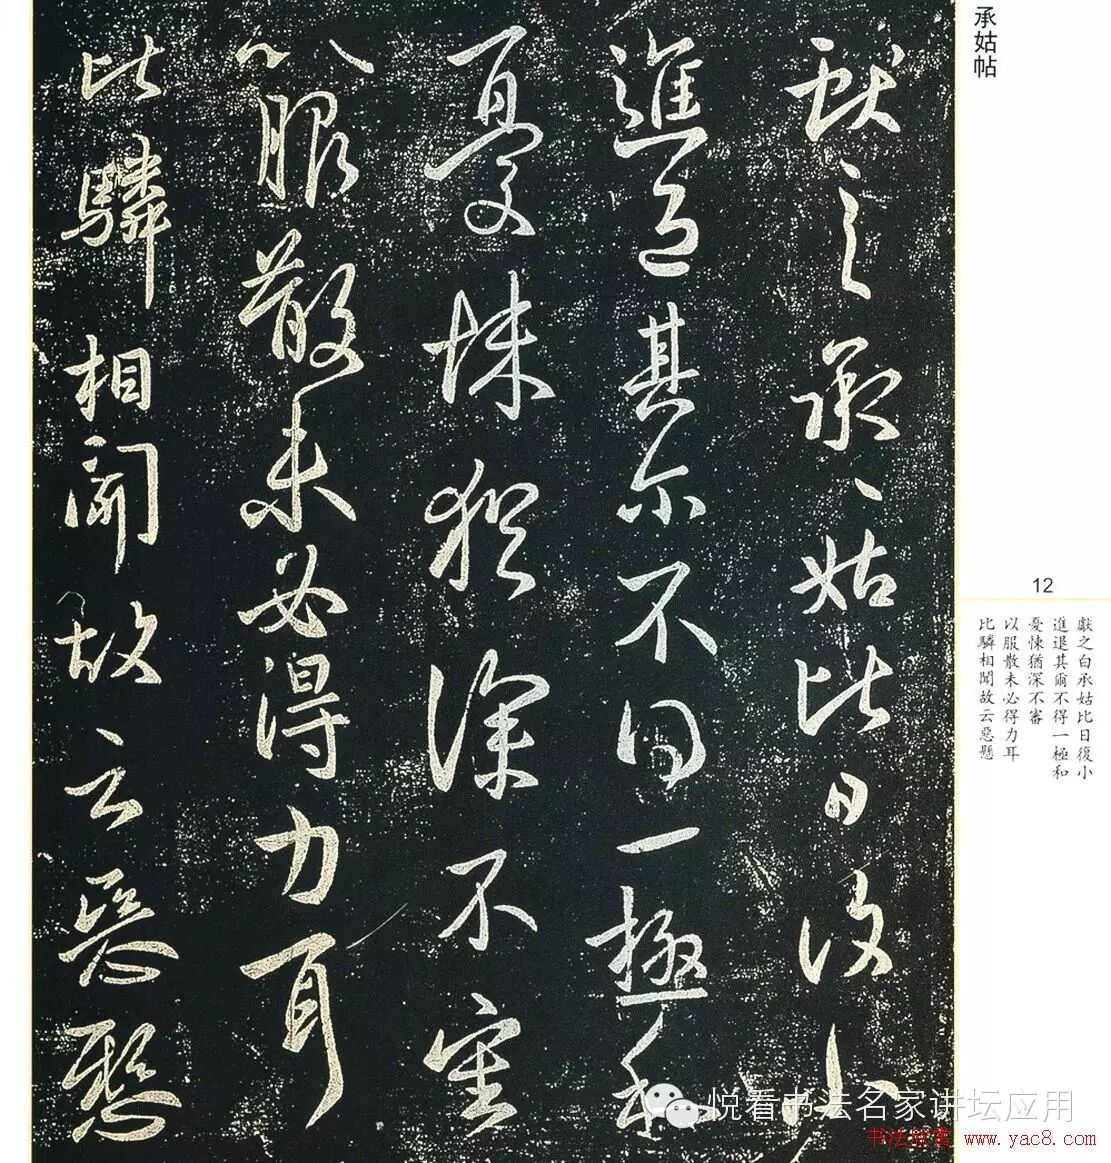 承姑帖
獻之承姑比日復小
進退其尔不得一極和
憂悚猶深不審
以服散未必得力耳
比驎相聞故云惡懸
12
獻之白承姑比日復小
進退其爾不得一極和
憂悚猶深不審
以服散未必得力耳
比驎相聞故云惡懸
悦看书法名家讲坛应用
书法欣赏 www.yac8.com